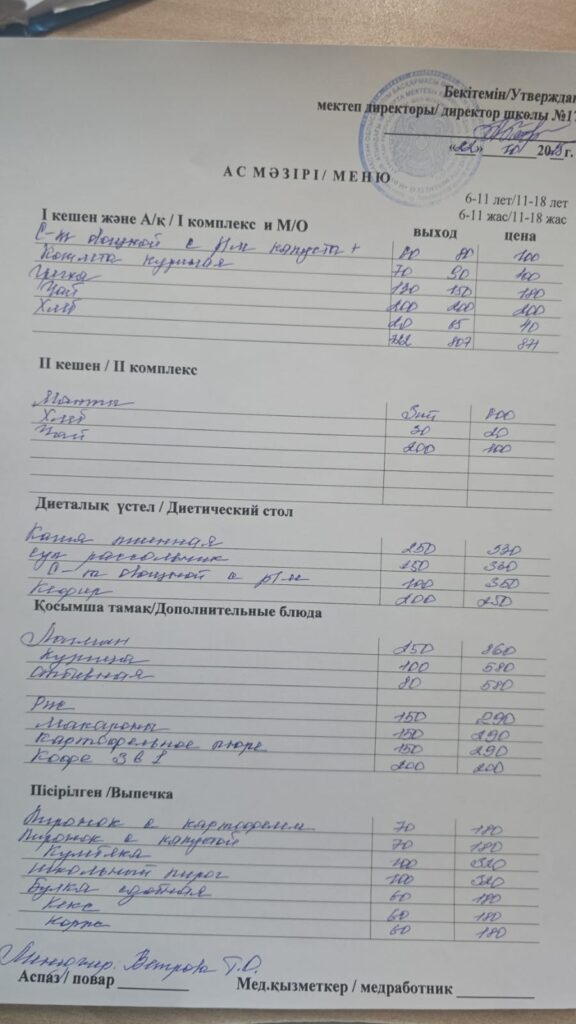 Бекітемін/Утверждаю
мектеп директоры/ директор школы №17
«22» 10 2025 г.
АС МӘЗІРІ / МЕНЮ
6-11 лет/11-18 лет
6-11 жас/11-18 жас
І кешен және А/қ / I комплекс и М/О выход цена
С-т овощной с р/м капуста + 80 80 100
Котлета куриная 70 90 400
Гречка 130 150 180
Чай 200 200 200
Хлеб 20 65 40
722 807 871
ІІ кешен / II комплекс
Манты 3шт 800
Хлеб 30 20
Чай 200 100
Диеталық үстел / Диетический стол
Каша пшенная 250 330
Суп рассольник 150 330
С-т овощной с р/м 100 350
Кефир 200 250
Қосымша тамақ/Дополнительные блюда
Лагман 250 860
Курица 100 580
Отбивная 80 580
Рис 150 290
Макароны 150 290
Картофельное пюре 150 290
Кофе 3 в 1 200 200
Пісірілген /Выпечка
Пирожок с картофелем 70 180
Пирожок с капустой 70 180
Кулебяка 100 320
Школьный пирог 100 320
Булка сдобная 60 180
Кекс 60 180
Корж 60 180
Менеджер. Ветрова Т.О.
Аспаз / повар Мед.қызметкер / медработник